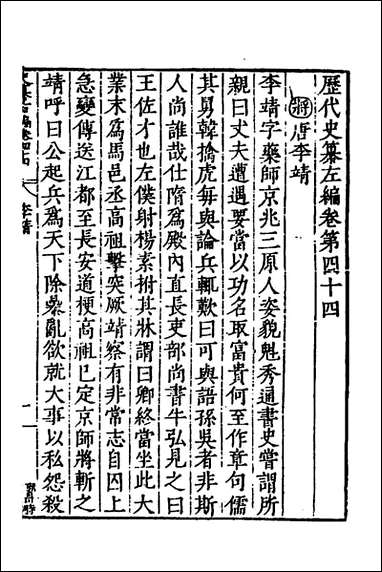 歷代史纂左編卷第四十四
將 唐李靖
李靖字藥師京兆三原人姿貌魁秀通書史嘗謂所
親曰丈夫遭遇要當以功名取富貴何至作章句儒
其舅韓擒虎每與論兵輒歎曰可與語孫吳者非斯
人尚誰哉仕隋爲殿內直長吏部尚書牛弘見之曰
王佐才也左僕射楊素拊其牀謂曰卿終當坐此大
業末爲馬邑丞高祖擊突厥靖察有非常志自囚上
急變傳送江都至長安道梗高祖已定京師將斬之
靖呼曰公起兵爲天下除暴亂欲就大事以私怨殺
李靖
一